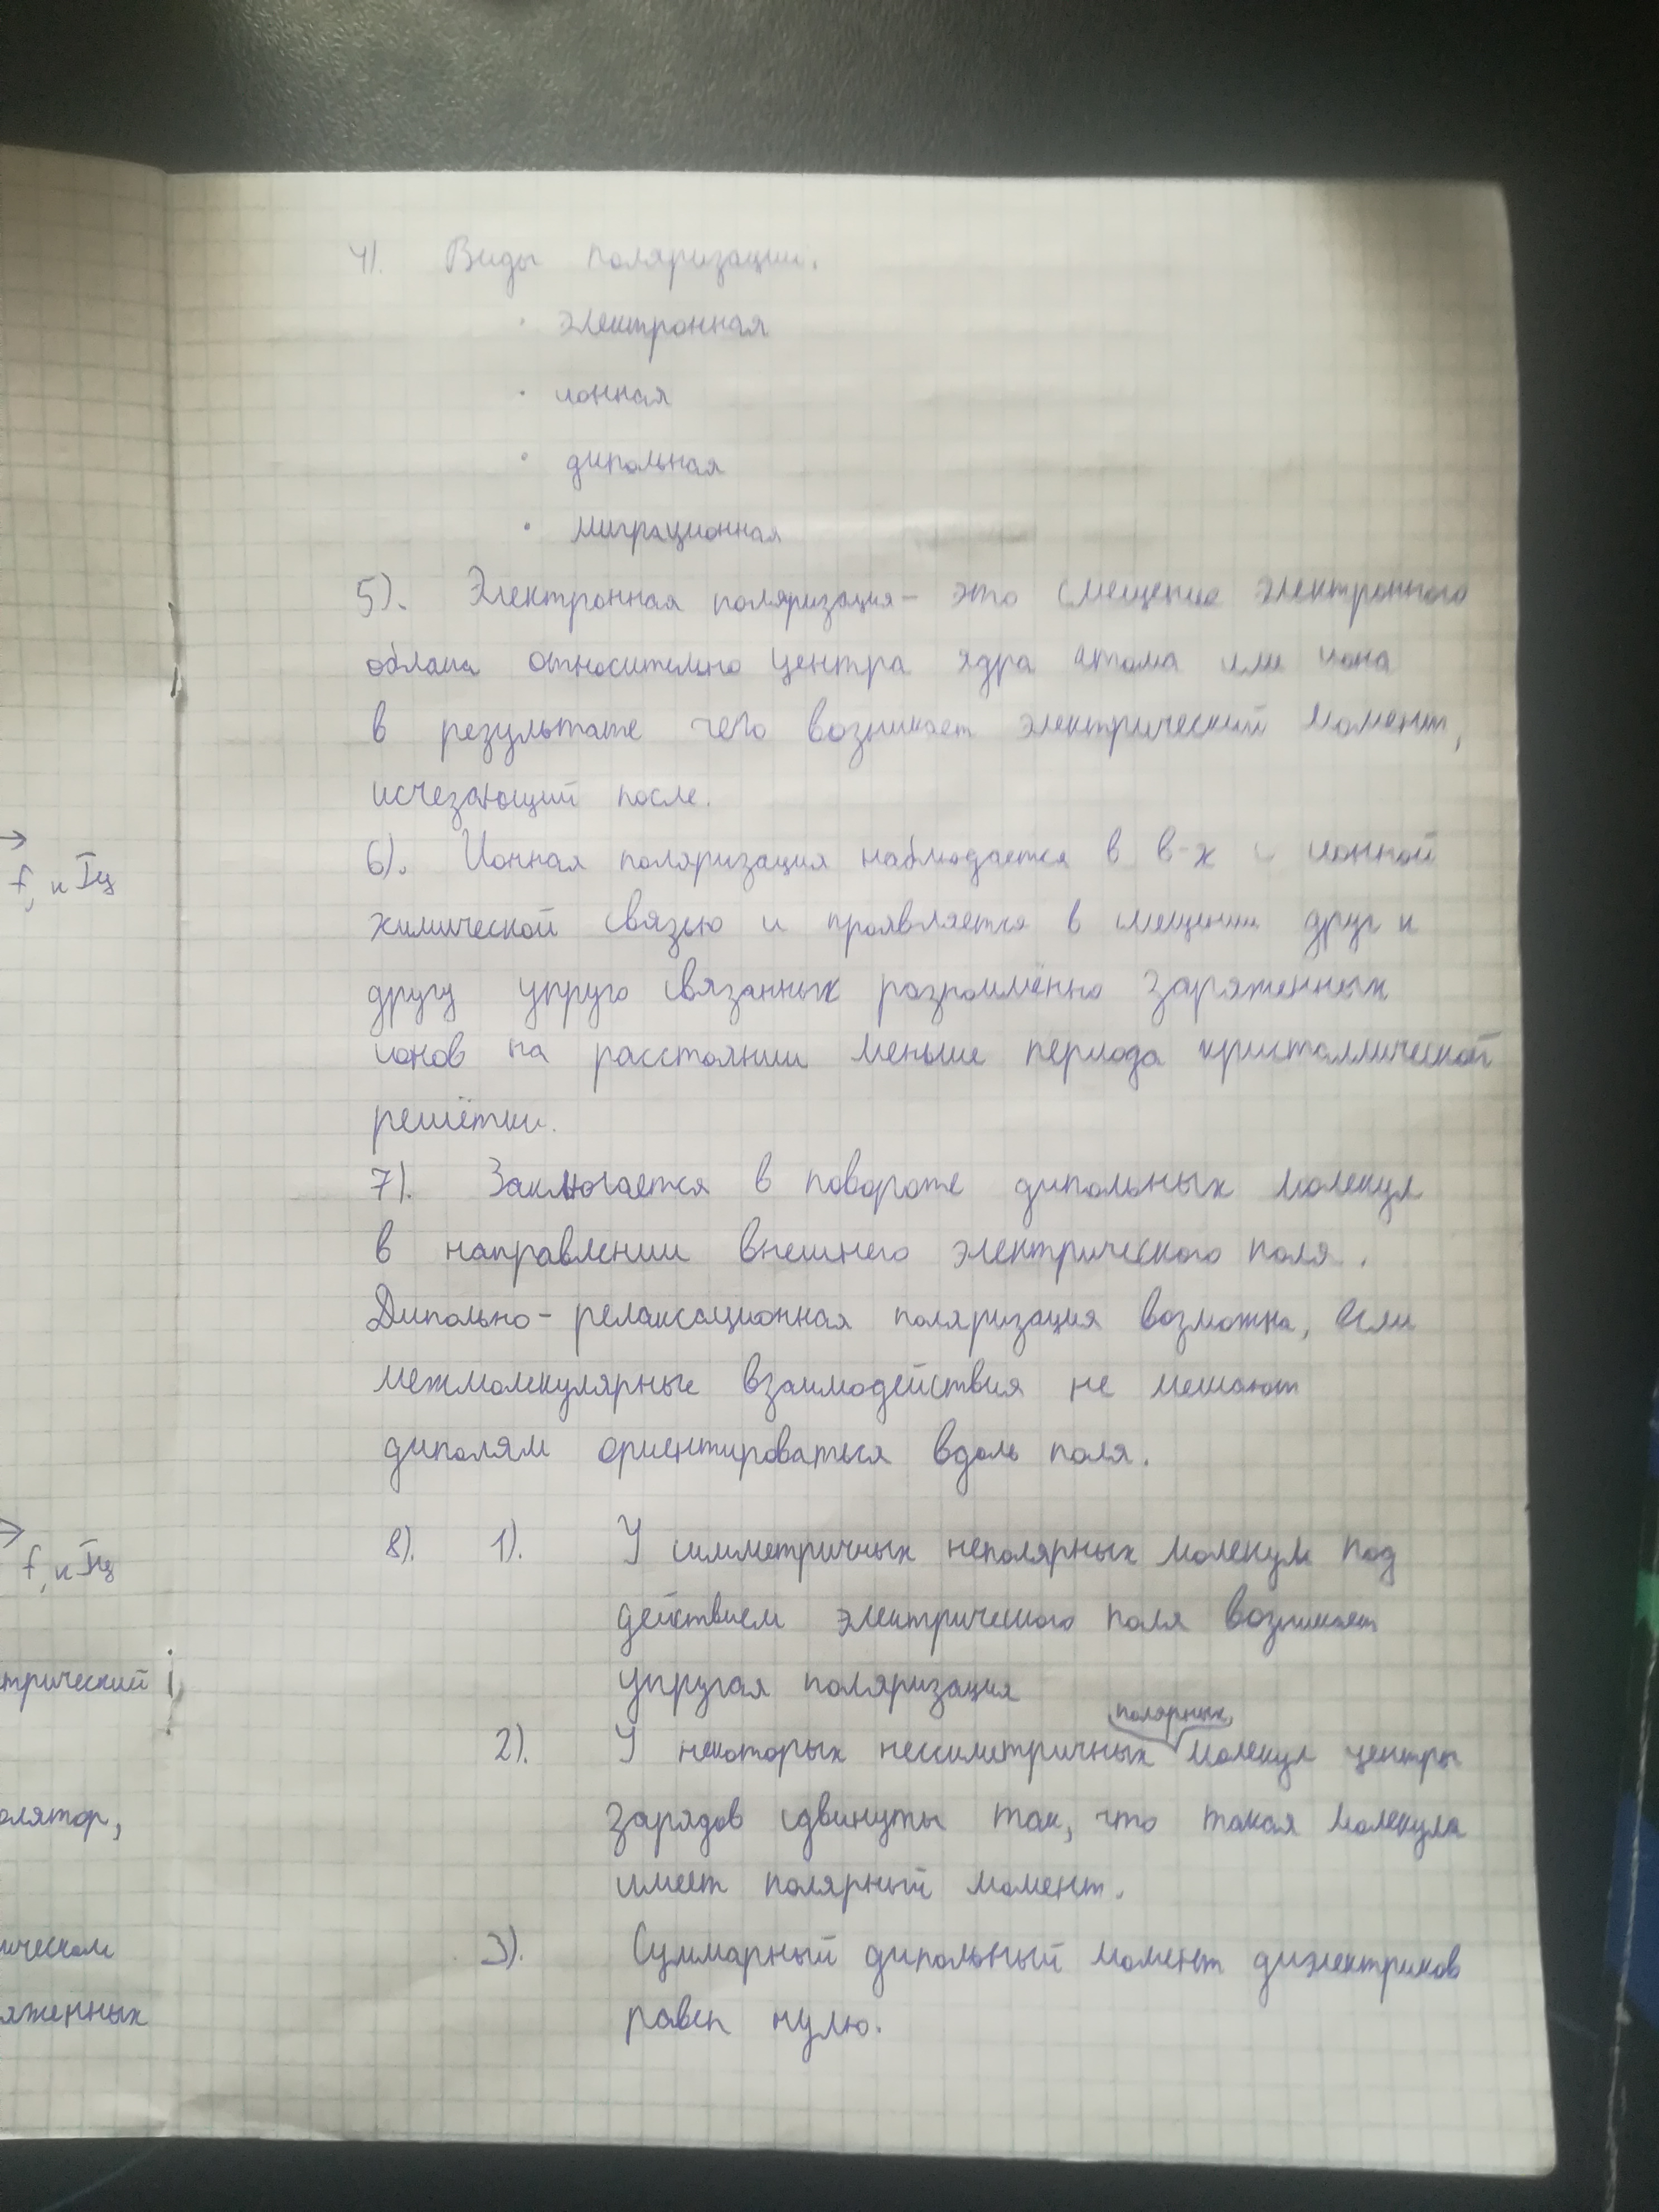 4). Виды поляризации.
· электронная
· ионная
· дипольная
· миграционная
5). Электронная поляризация – это смещение электронного
облака относительно центра ядра атома или иона
в результате чего возникает электрический момент,
исчезающий после.
6). Ионная поляризация наблюдается в в-х с ионной
химической связью и проявляется в смещении друг к
другу упруго связанных разноимённо заряженных
ионов на расстоянии меньше периода кристаллической
решётки.
7). Заключается в повороте дипольных молекул
в направлении внешнего электрического поля.
Дипольно-релаксационная поляризация возможна, если
межмолекулярные взаимодействия не мешают
диполям ориентироваться вдоль поля.
8). 1). У симметричных неполярных молекул под
действием электрического поля возникает
упругая поляризация
полярных
2). У некоторых нессиметричных молекул центры
зарядов сдвинуты так, что такая молекула
имеет полярный момент.
3). Суммарный дипольный момент диэлектриков
равен нулю.
f, кГц
f, кГц
трический
олятор,
ическом
яженных